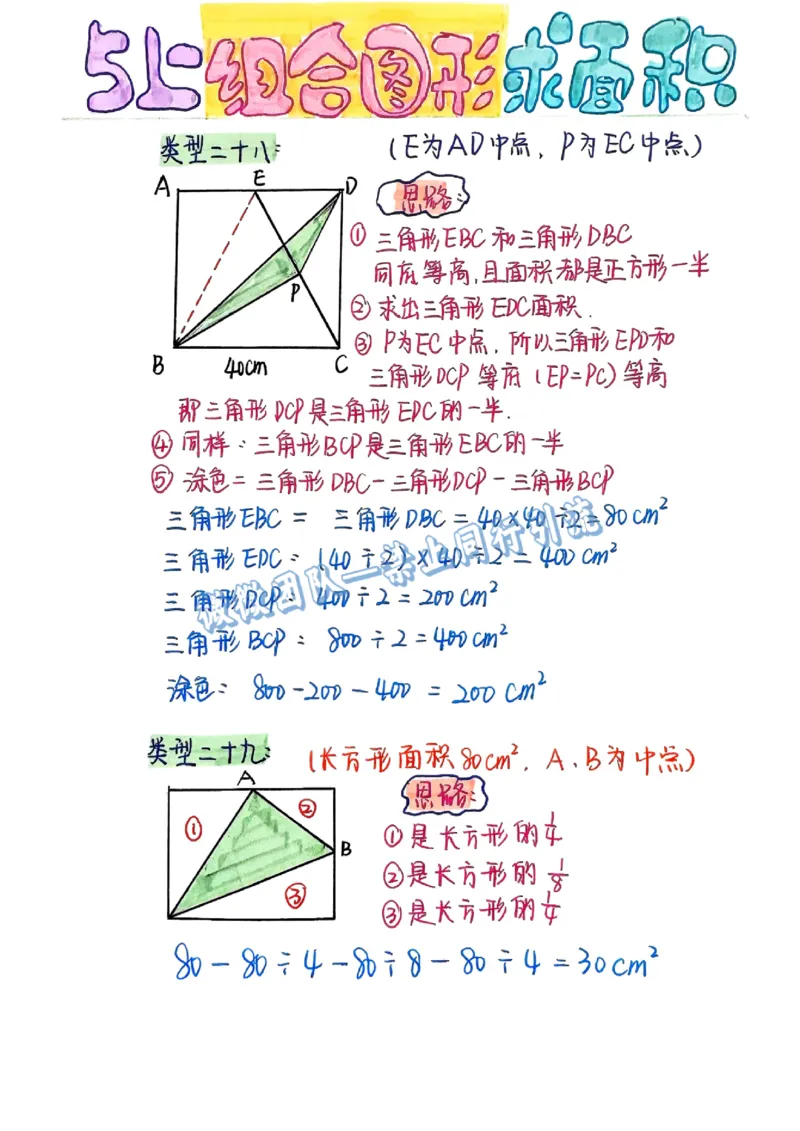 5上组合图形求面积
类型二十八: (E为AD中点, P为EC中点)
A E D
思路:
①三角形EBC和三角形DBC
同底等高,且面积都是正方形一半
P
②求出三角形EDC面积.
③P为EC中点,所以三角形EPD和
B 40cm C
三角形DCP等底(EP=PC)等高
即三角形DCP是三角形EDC的一半.
④同样:三角形BCP是三角形EBC的一半
⑤涂色=三角形DBC-三角形DCP-三角形BCP
三角形EBC = 三角形DBC=40×40÷2=80cm²
三角形EDC:(40÷2)×40÷2=400cm²
三角形DCP:400÷2=200cm²
三角形BCP:800÷2=400cm²
涂色:800-200-400=200cm²
微微团队—禁止同行引流
类型二十九: (长方形面积80cm², A、B为中点)
A
思路:
① ②
①是长方形的1/4
B
②是长方形的1/8
③
③是长方形的1/4
80-80÷4-80÷8-80÷4=30cm²